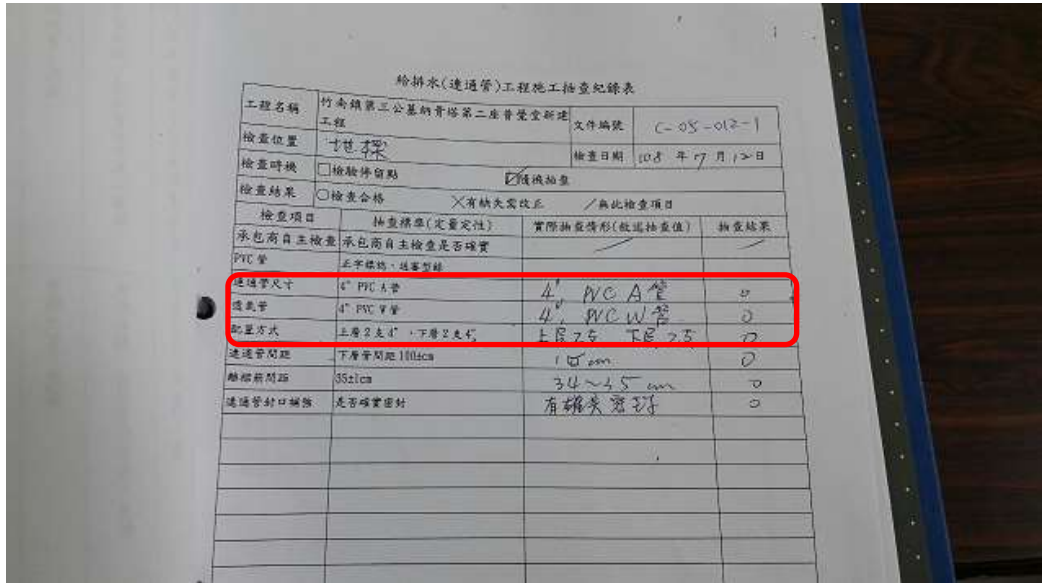 給排水(連通管)工程施工抽查紀錄表
工程名稱 竹南鎮第三公墓納骨塔第二座普覺堂新建工程 文件編號 C-05-012-1
檢查位置 地樑 檢查日期 108 年 7 月 12 日
檢查時機 □檢驗停留點 ☑隨機抽查
檢查結果 ○檢查合格 ╳有缺失需改正 ╱無此檢查項目
檢查項目 抽查標準(定量定性) 實際抽查情形(敘述抽查值) 抽查結果
承包商自主檢查 承包商自主檢查是否確實 / /
PVC 管 正字標誌、送審型錄
連通管尺寸 4" PVC A 管 4" PVC A 管 ○
透氣管 4" PVC W 管 4" PVC W 管 ○
配置方式 上層 2 支 4"、下層 2 支 4" 上層 2支 下層 2支 ○
連通管間距 下層管間距 10±cm cm ○
離樑筋間距 35±1cm 34~35 cm ○
連通管封口補強 是否確實密封 有確實密封 ○